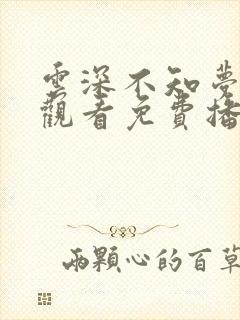 雲深不知夢
觀看免費播
兩顆心的百草